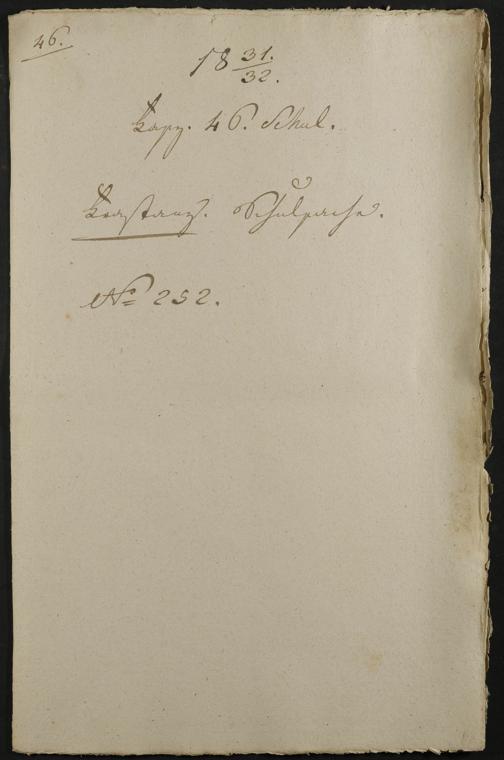 46.
18 31./32.
46. Schul.
Schulsache.
No 252.